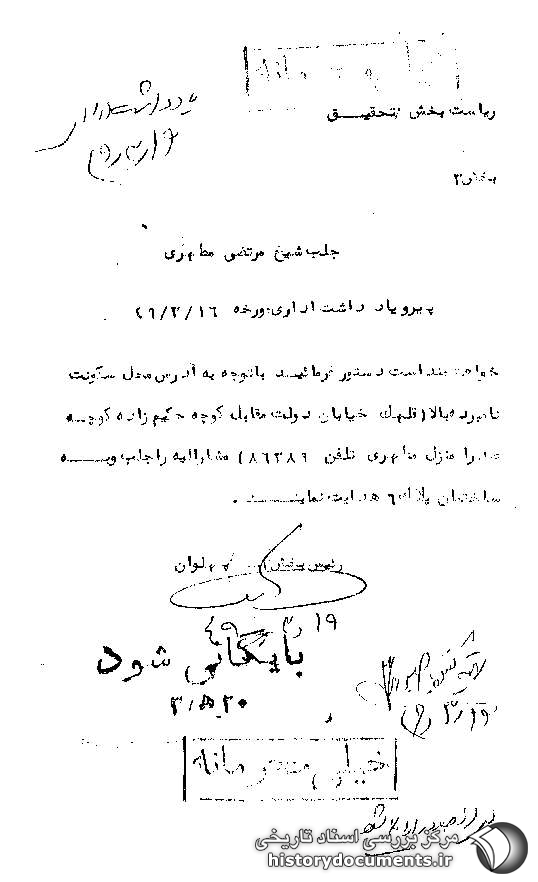 خیلی محرمانه
یادداشت اداری
ریاست بخش تحقیـــق
بخش ۲
جلب شیخ مرتضی مطهری
پیرو یاد داشت اداری مورخه ۴۹/۳/۱۶
خواهشمند است دستور فرمائیـــد باتوجه به آدرس محل سکونت
نامبرده بالا ( قلهک خیابان دولت مقابل کوچه حکیم زاده کوچـــه
صدرا منزل مطهری تلفن ۸۶۲۸۹ ) مشارالیه را جلب وبـــه
ساختمان پلاک ۶ هدایت نماینــــد .
رئیس بخش ۲ . پهلوان
۱۹ ر۳ر ۴۹
بایگانی شود
۲۰ر۵ر۳
خیلی محرمانه
مرکز بررسی اسناد تاریخی
historydocuments.ir